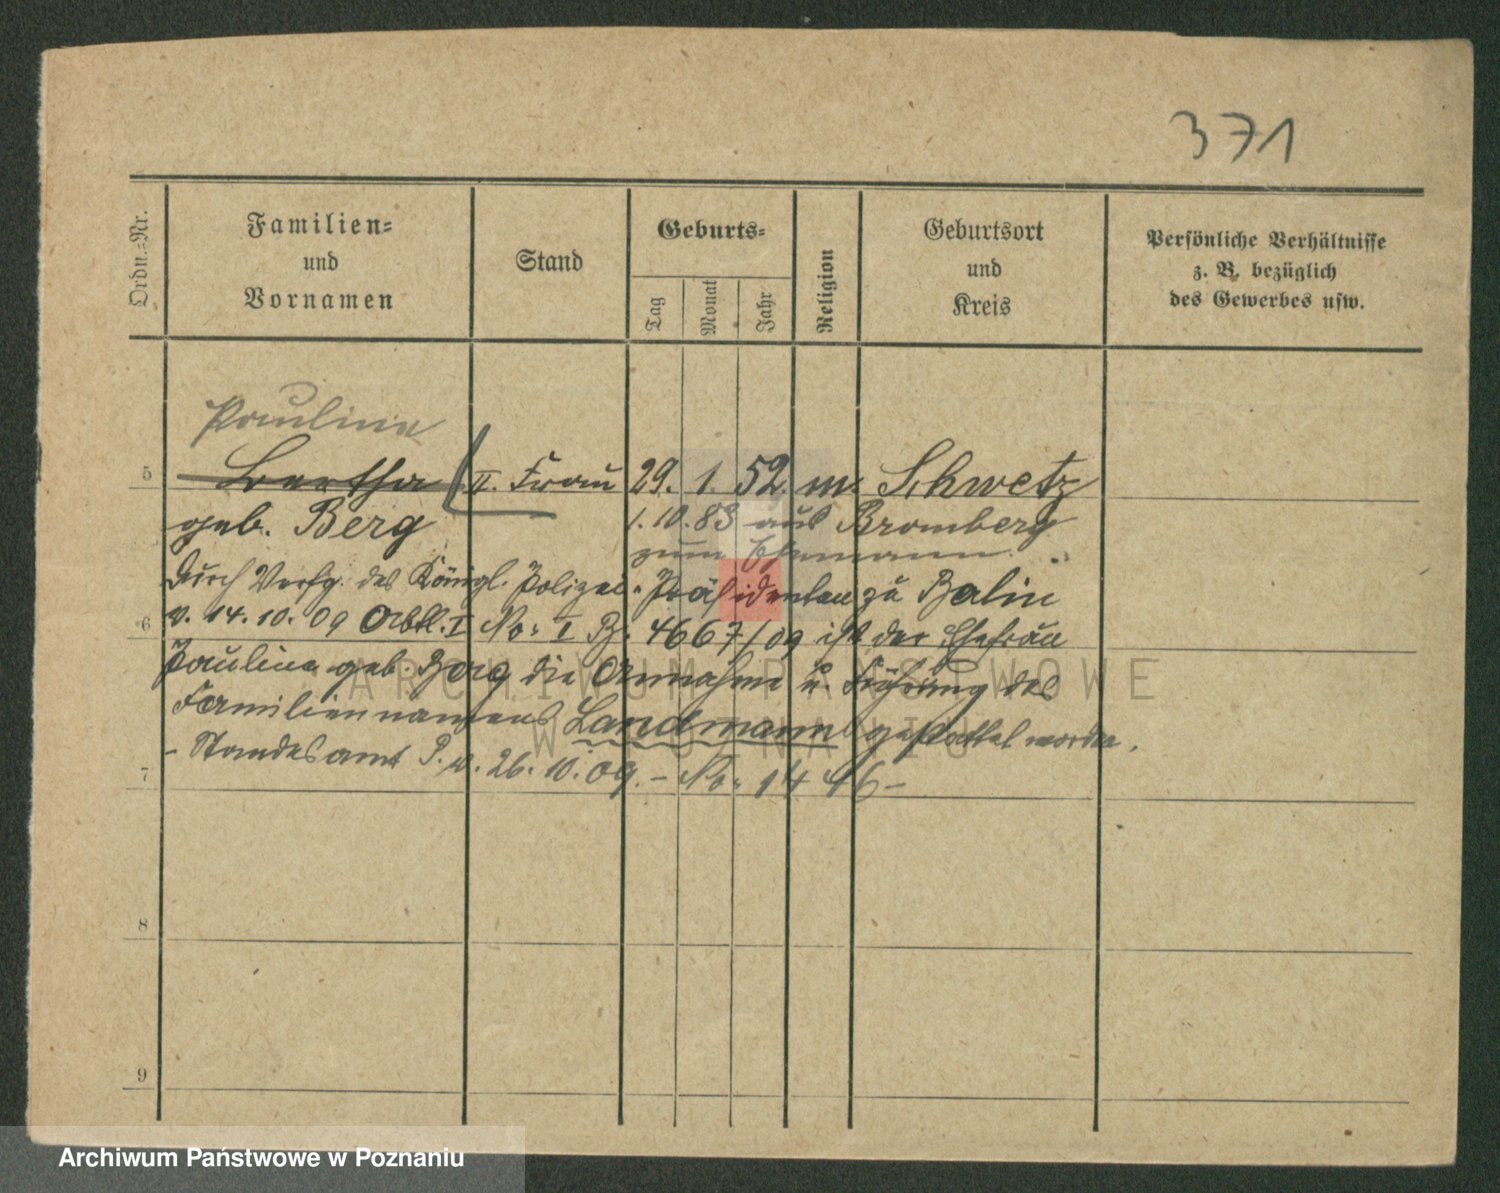 371
Ordn.-Nr.
Familien-
und
Vornamen
Stand
Geburts-
Tag
Monat
Jahr
Religion
Geburtsort
und
Kreis
Persönliche Verhältnisse
z. B. bezüglich
des Gewerbes usw.
Pauline
5 Bertha II. Frau 29. 1. 52. m. Schwetz
geb. Berg 1.10.83 aus Bromberg
zum Ehemann.
Durch Verfg. des Königl. Polizei-Präsidenten zu Berlin
6 v. 14.10.09 Abtl. I No: I 4667/09 ist der Ehefrau
Pauline geb. Berg die Annahme u. Führung des
Familiennamens Landmann gestattet worden.
- Standesamt P. v. 26.10.09. - No: 1446 -
7
8
9
ARCHIWUM PAŃSTWOWE
W POZNANIU
Archiwum Państwowe w Poznaniu